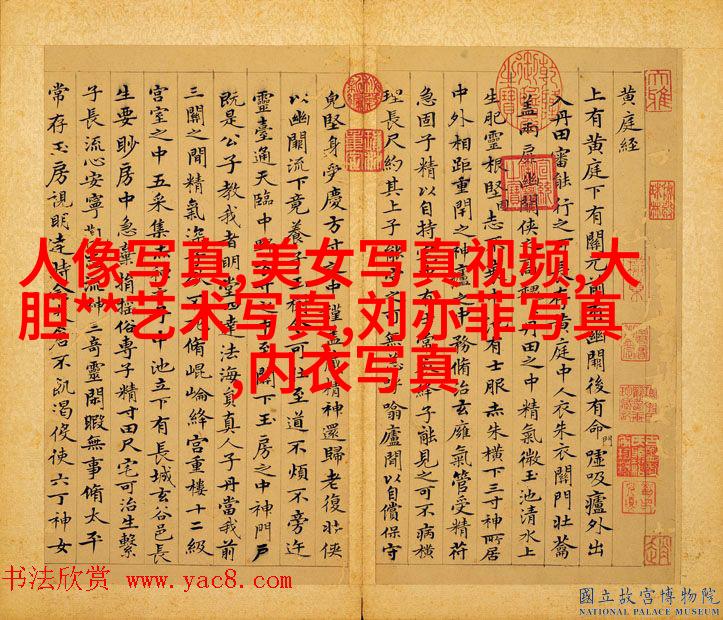 黄庭経
上有黄庭下有關元前有幽關後有命門噓吸廬外出
入丹田審能行之可長存黄庭中人衣朱衣關門壯籥
蓋兩扉幽關俠之高巍丹田之中精氣微玉池清水上
生肥靈根堅志不衰中池有士服赤朱橫下三寸神所居
中外相距重閇之神廬之中務脩治玄廱氣管受精符
急固子精以自持宅中有士常衣絳子能見之可不病橫
理長尺約其上子能守之可無恙呼噏廬間以自償保守
皃堅身受慶方寸之中謹蓋藏精神還歸老復壯俠
以幽闕流下竟養子玉樹令可杖至道不煩不旁迕
靈臺通天臨中野方寸之中至關下玉房之中神門戶
既是公子教我者明堂四達法海員真人子丹當我前
三關之間精氣深子欲不死脩崐崘絳宮重樓十二級
宮室之中五采集赤神之子中池立下有長城玄谷邑長
生要眇房中急棄捐搖俗專子精寸田尺宅可治生繫
子長流心安寧觀志流神三奇靈閑暇無事脩太平
常存玉房視明達時念太倉不飢渴役使六丁神女
人像写真,美女写真视频,大
胆**艺术写真,刘亦菲写真
,内衣写真
书法欣赏 www.yac8.com
國立故宮博物院
NATIONAL PALACE MUSEUM